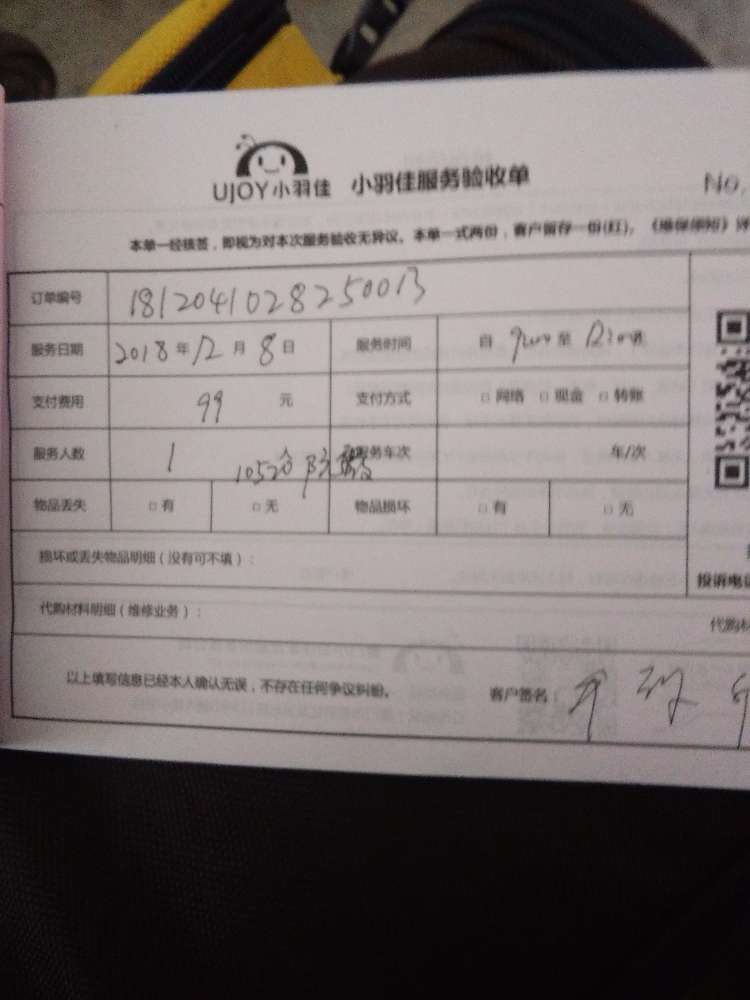 UJOY小羽佳 小羽佳服务验收单 No.
本单一经核签，即视为对本次服务验收无异议。本单一式两份，客户留存一份(红)，
订单编号 1812041028250013
服务日期 2018年12月8日 服务时间 自 9:00 至 12:00
支付费用 99 元 支付方式 □网络 □现金 □转账
服务人数 1 人 服务车次 年/次
物品丢失 □有 □无 物品损坏 □有 □无
损坏或丢失物品明细（没有可不填）：
投诉电话
代购材料明细（维修业务）：
代购材
以上填写信息已经本人确认无误，不存在任何争议纠纷。 客户签名：